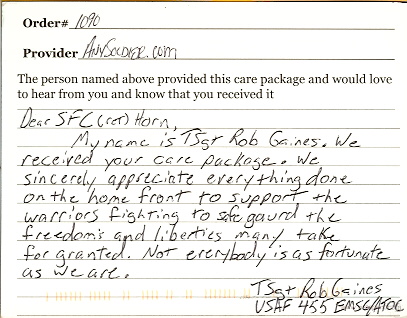 Order# 1090
Provider AnySoldier.com
The person named above provided this care package and would love
to hear from you and know that you received it
Dear SFC (ret) Horn,
My name is TSgt Rob Gaines. We
received your care package. We
sincerely appreciate everything done
on the home front to support the
warriors fighting to safe gaurd the
freedoms and liberties many take
for granted. Not everybody is as fortunate
as we are.
TSgt Rob Gaines
USAF 455 EMSG/ATOC